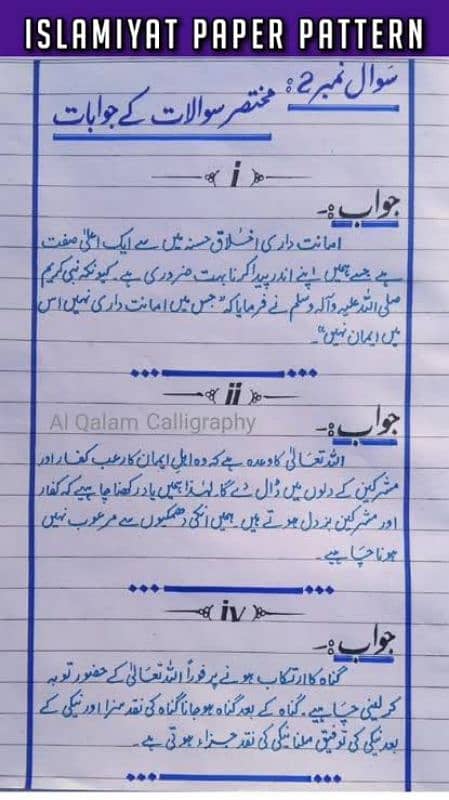 ISLAMIYAT PAPER PATTERN
سوال نمبر 2:
مختصر سوالات کے جوابات
i
جواب:-
امانت داری اخلاق حسنہ میں سے ایک اعلیٰ صفت
ہے جسے ہمیں اپنے اندر پیدا کرنا بہت ضروری ہے۔ کیونکہ نبی کریم
صلی اللہ علیہ وآلہ وسلم نے فرمایا کہ "جس میں امانت داری نہیں اس
میں ایمان نہیں"۔
ii
Al Qalam Calligraphy
جواب:-
اللہ تعالیٰ کا وعدہ ہے کہ وہ اہل ایمان کا رعب کفار اور
مشرکین کے دلوں میں ڈال دے گا۔ لہٰذا ہمیں یاد رکھنا چاہیے کہ کفار
اور مشرکین بزدل ہوتے ہیں۔ ہمیں انکی دھمکیوں سے مرعوب نہیں
ہونا چاہیے۔
iv
جواب:-
گناہ کا ارتکاب ہونے پر فوراً اللہ تعالیٰ کے حضور توبہ
کر لینی چاہیے۔ گناہ کے بعد گناہ ہو جانا گناہ کی نقد سزا اور نیکی کے
بعد نیکی کی توفیق ملنا نیکی کی نقد جزاء ہوتی ہے۔